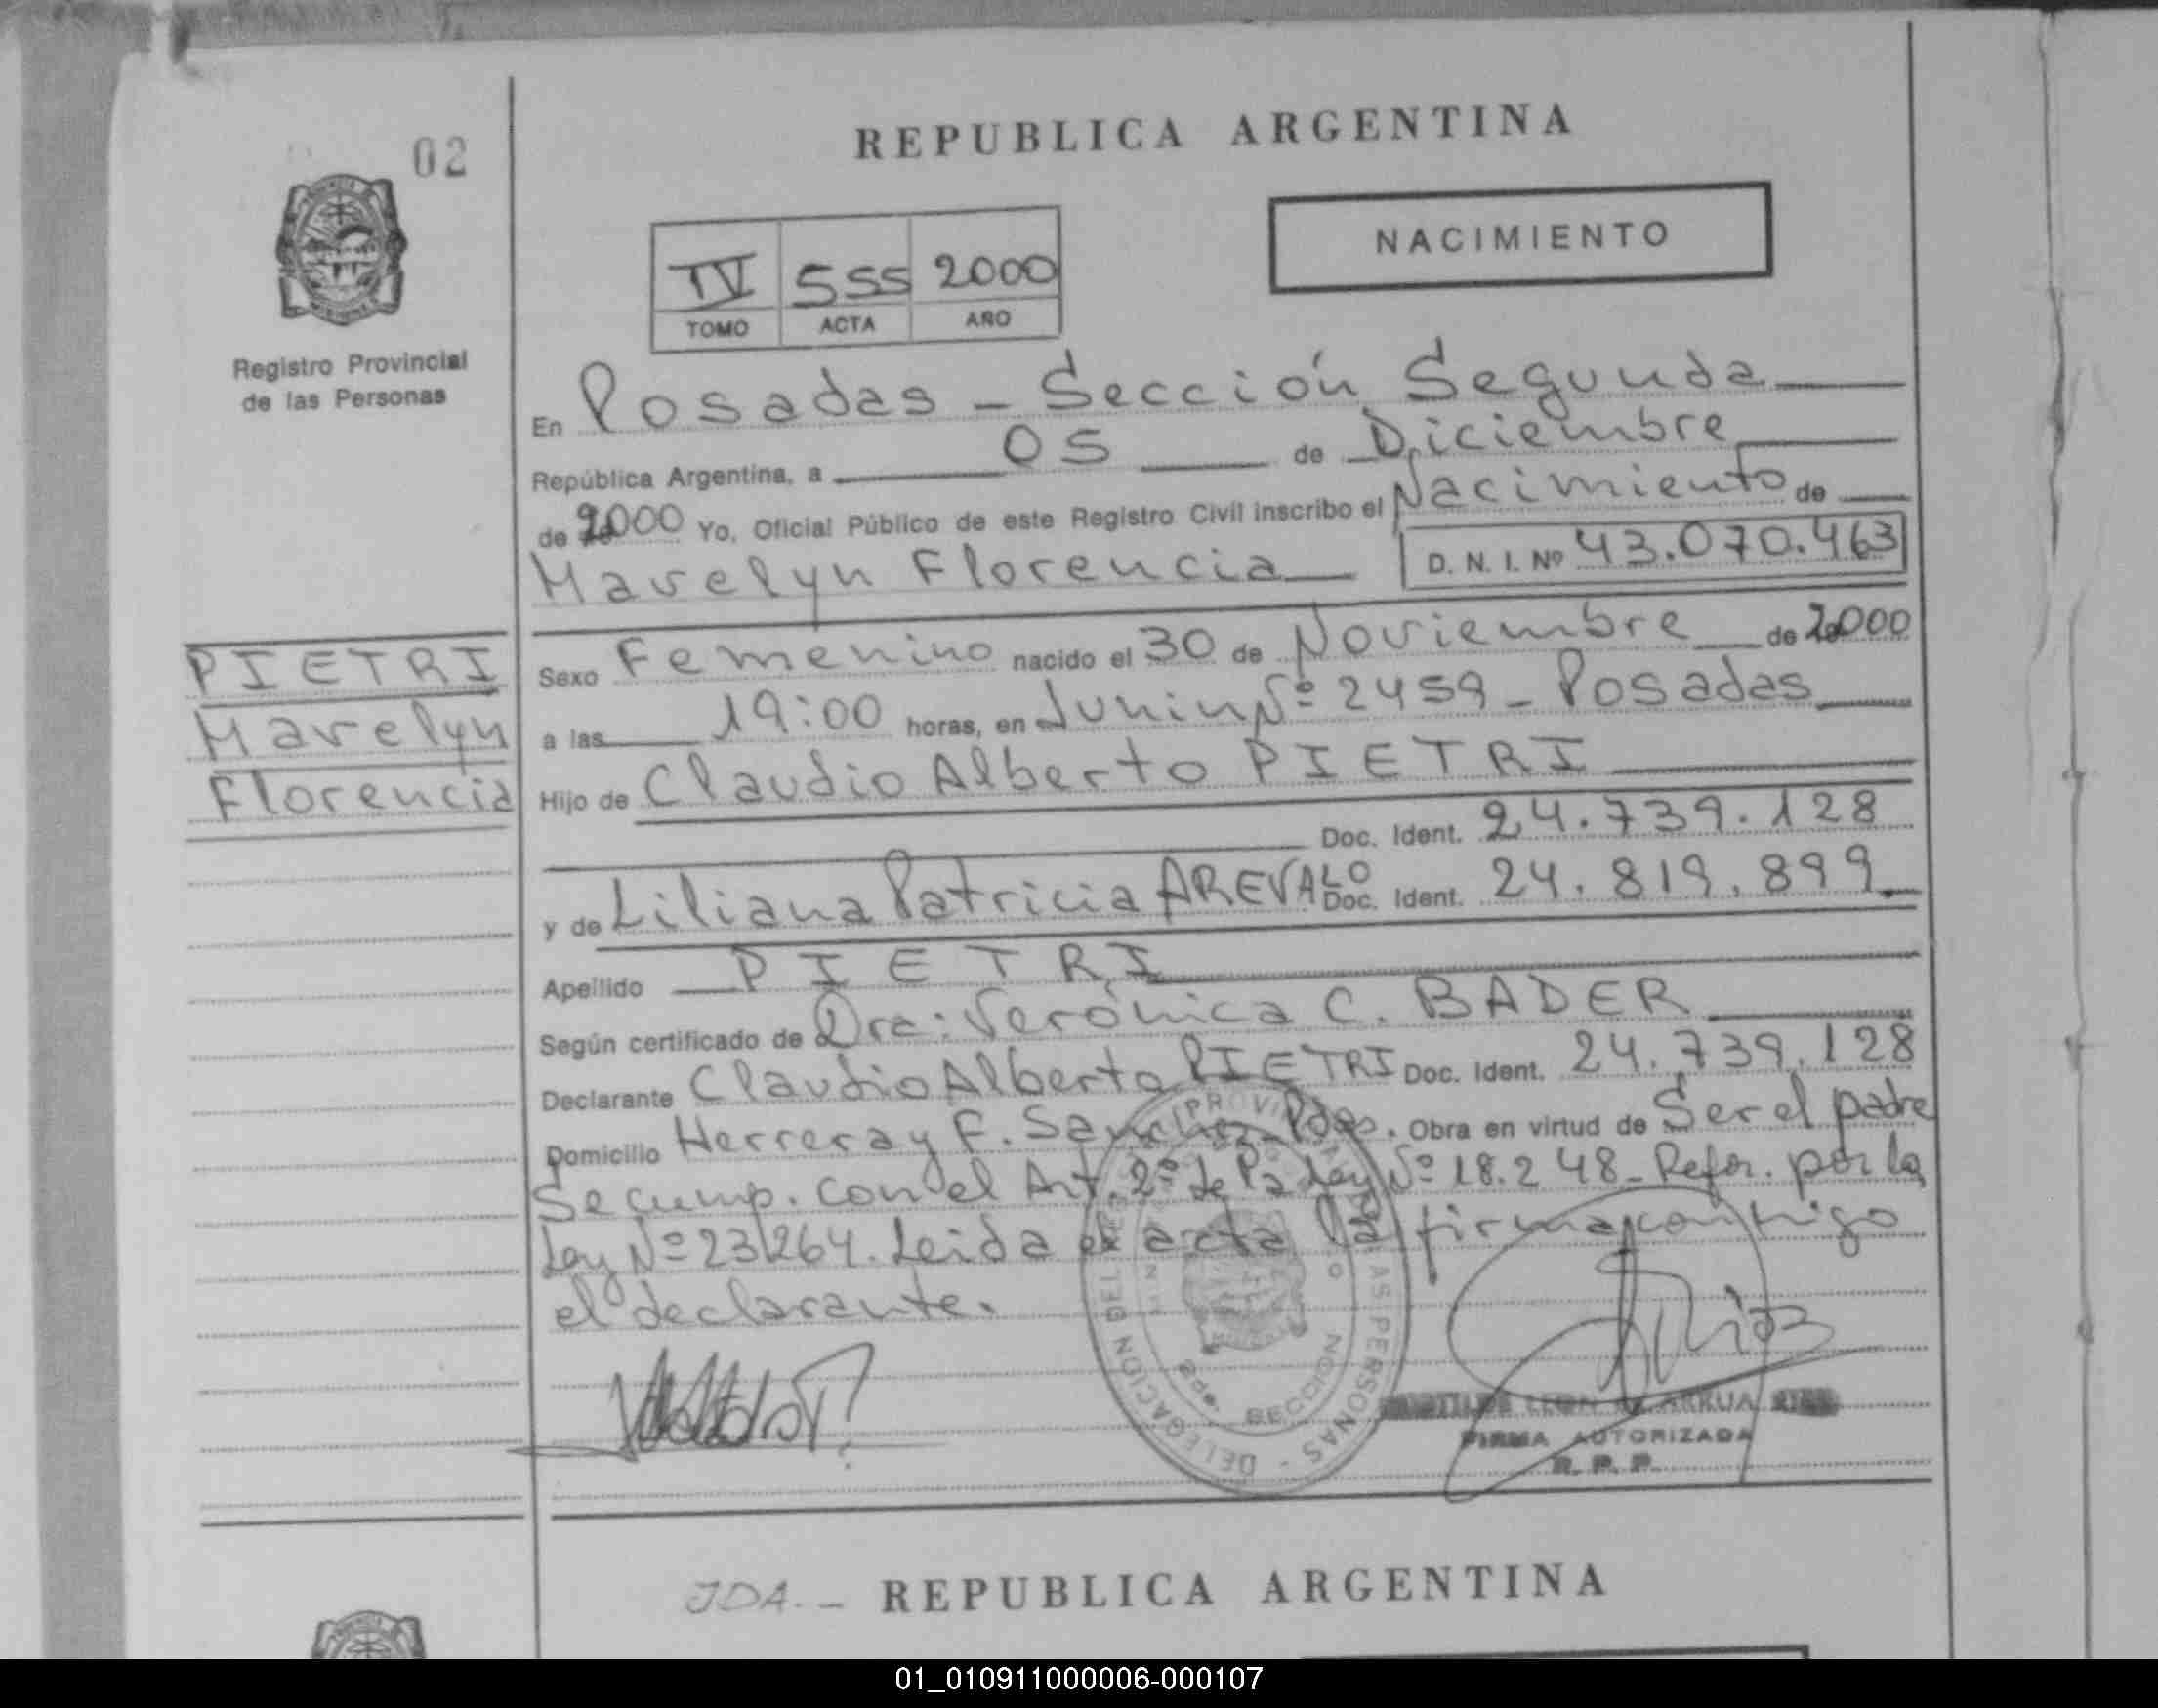 02
REPUBLICA ARGENTINA
NACIMIENTO
IV 555 2000
TOMO ACTA AÑO
Registro Provincial
de las Personas
En Posadas - Sección Segunda
República Argentina, a 05 de Diciembre
de 2000 Yo, Oficial Público de este Registro Civil inscribo el Nacimiento de
Mavelyn Florencia D. N. I. Nº 43.070.463
PIETRI
Mavelyn
Florencia
Sexo Femenino nacido el 30 de Noviembre de 2000
a las 19:00 horas, en Junin Nº 2459 - Posadas
Hijo de Claudio Alberto PIETRI
Doc. Ident. 24.739.128
y de Liliana Patricia AREVALO Doc. Ident. 24.819.899
Apellido PIETRI
Según certificado de Dra: Verónica C. BADER
Declarante Claudio Alberto PIETRI Doc. Ident. 24.739.128
Domicilio Herrera y F. Sanchez - Pdas. Obra en virtud de Ser el padre
Se cump. con el Art. 2º de la Ley Nº 18.248 - Refor. por la
Ley Nº 23264. Leida el acta la firma conmigo
el declarante.
DELEGACION DEL AS PERSONAS
2da. SECCION
LEON ARRUA
FIRMA AUTORIZADA
R. P. P.
JDA. - REPUBLICA ARGENTINA
01_010911000006-000107